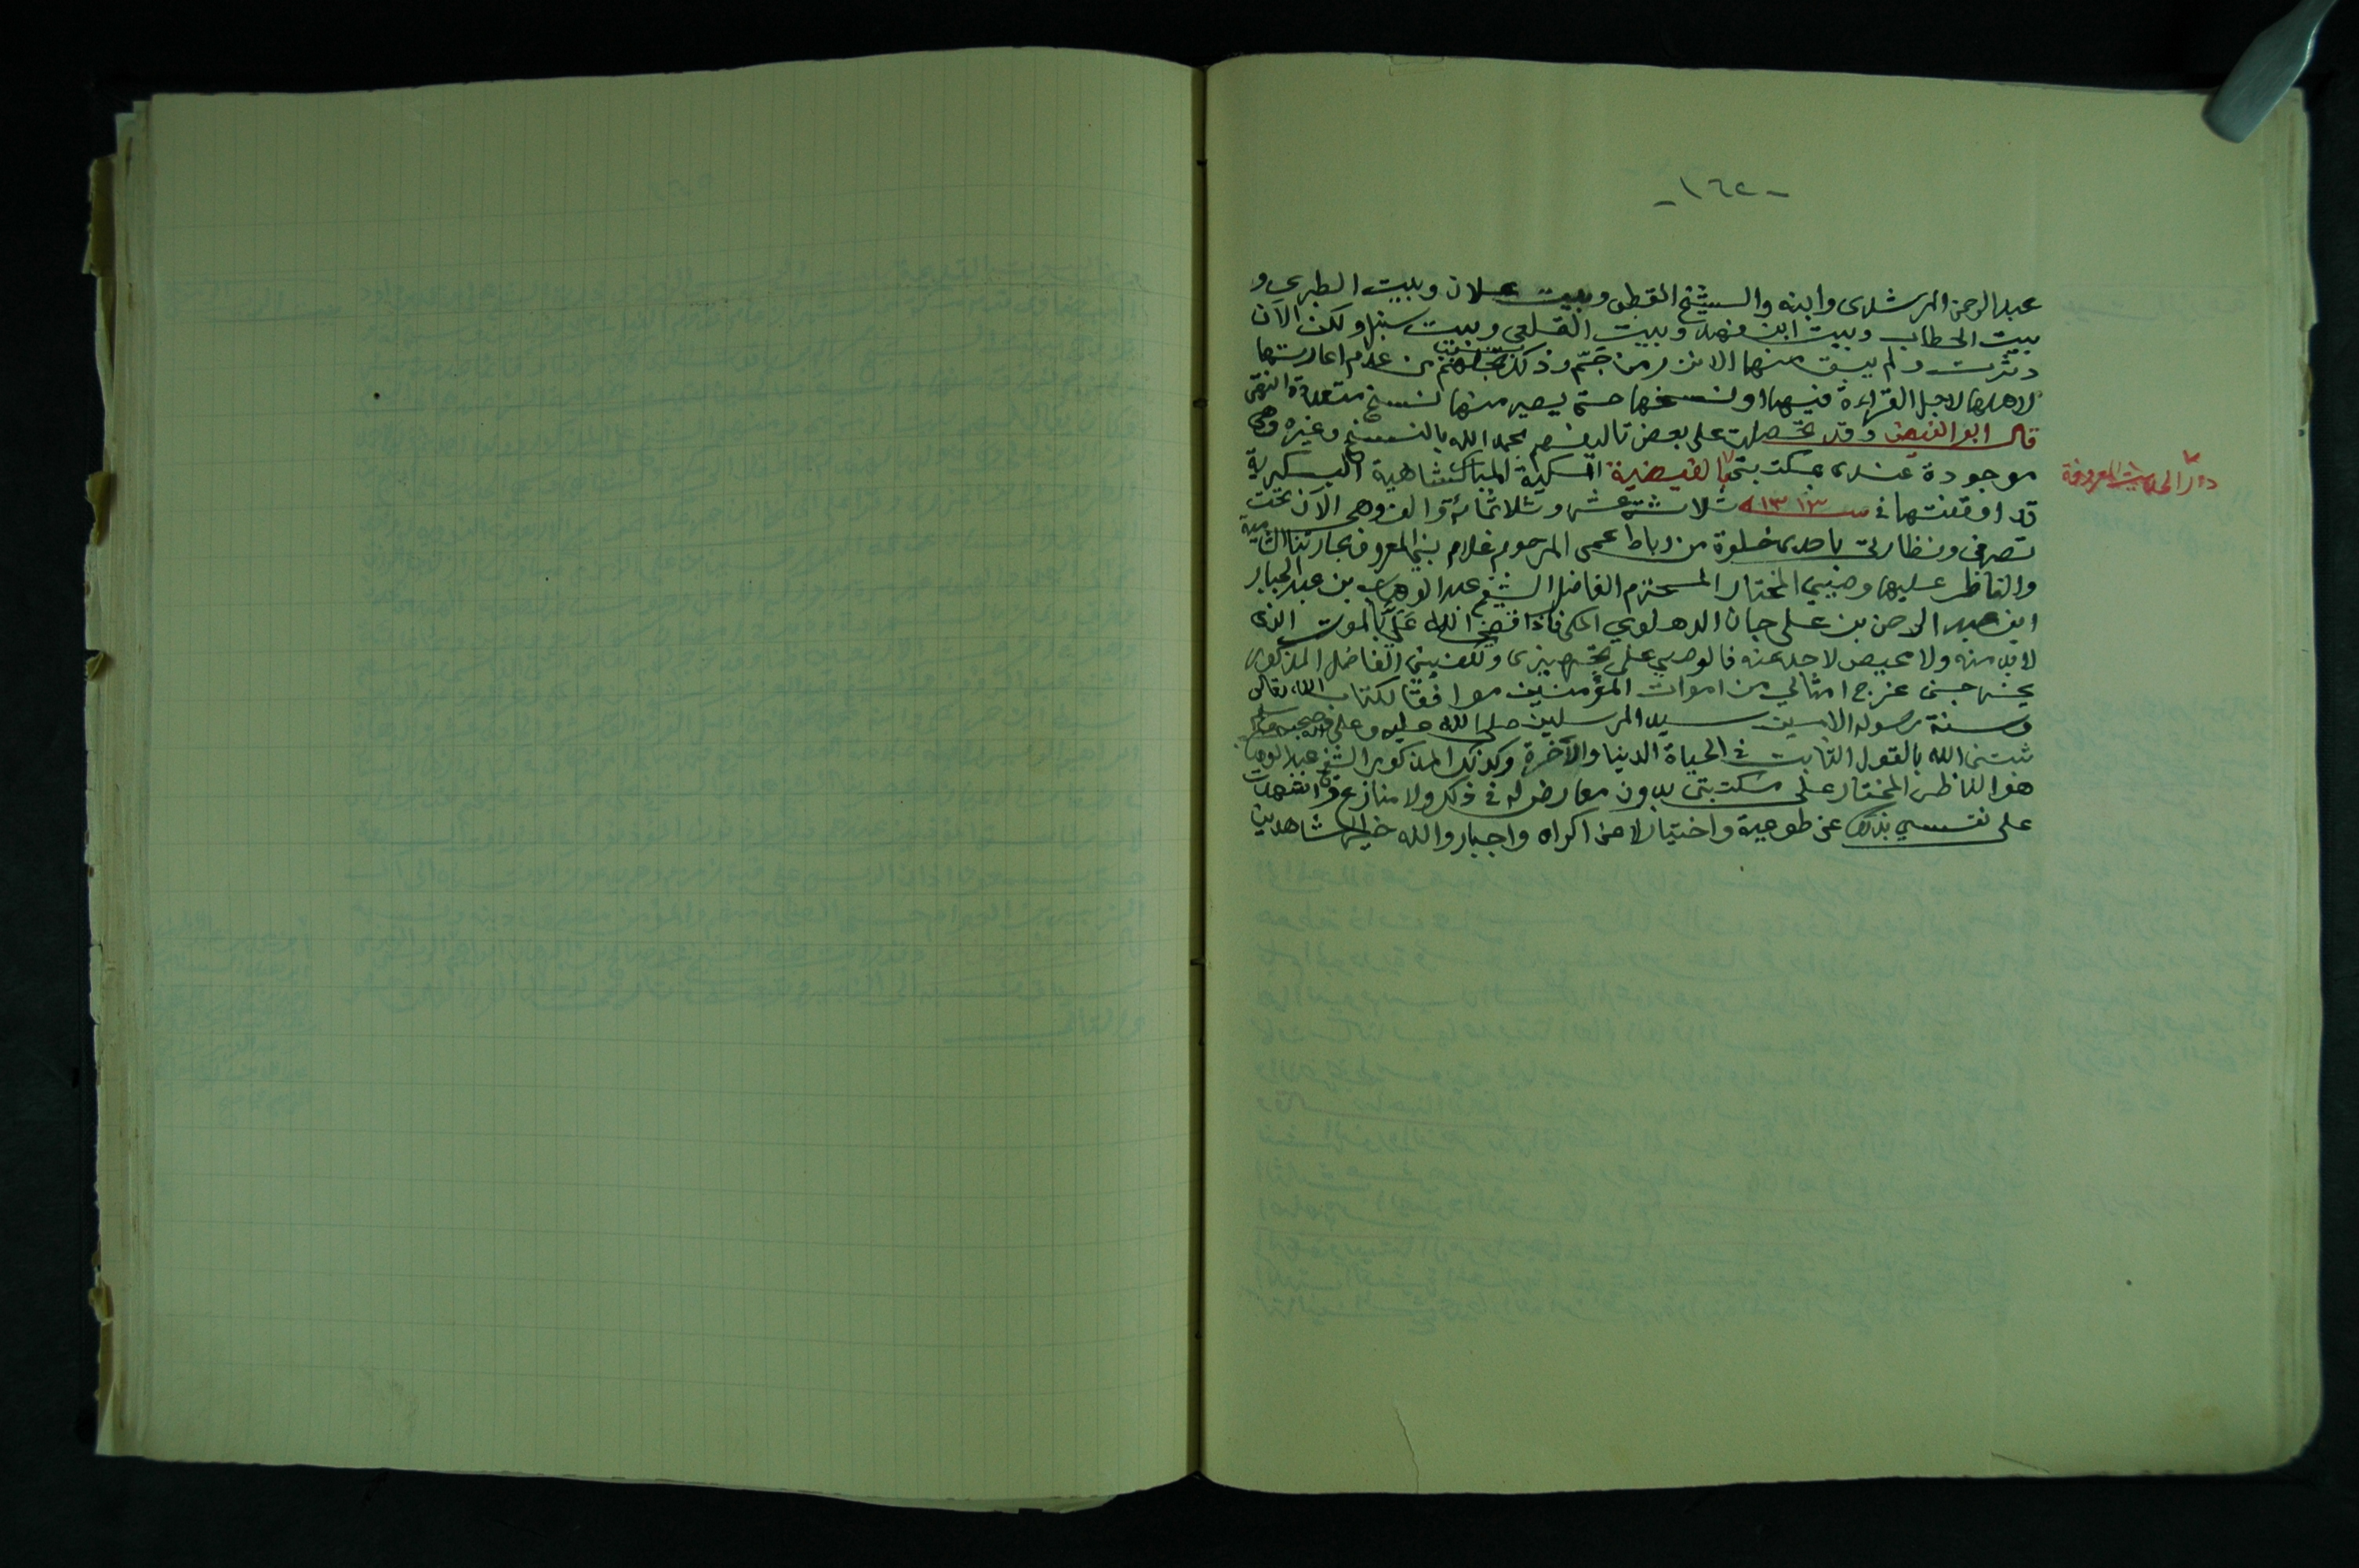 - ١٦٢ -
عبد الرحمن المرشدى وابنه والشيخ القطبى وبيت علان وبيت الطبرى و
بيت الحطاب وبيت ابن فهد وبيت القلعى وبيت سنبل ولكن الآن
دثرت ولم يبق منها الا نزر من جَمّ وذلك بسبب عدم اعارتها
لاهلها لاجل القراءة فيها او نسخها حتى يصير منها نسخ متعددة انتهى
قال ابو الفيض وقد تحصلت على بعض تاليفهم بحمد الله بالنسخ وغيره وهى
موجودة عندى بمكتبتى الفيضية المكية المباركشاهية البكرية
دار الحديث المعروفة
قد اوقفتها فى سنة ١٣١٣ ثلاث عشر وثلاثمائة والف وهى الآن تحت
تصرفى ونظارتى باحدى خلوة من رباط عمى المرحوم غلام نبى المعروف بحارتنا الشامية
والناظر عليها وصيي المختار المحترم الفاضل الشيخ عبد الوهاب بن عبد الجبار
ابن عبد الرحمن بن على جان الدهلوي المكى فاذا قضى الله عَلَيَّ بالموت الذى
لابد منه ولا محيص لاحد عنه فالوصي على تجهيزى وتكفينى الفاضل المذكور
يجهزنى امثالي من اموات المؤمنين موافقًا لكتاب الله تعالى
وسنة رسوله الامين سيد المرسلين صلى الله عليه وعلى آله وصحبه وسلم
ثبتنى الله بالقول الثابت فى الحياة الدنيا والآخرة وكذلك المذكور الشيخ عبد الوهاب
هو الناظر المختار على مكتبتى بدون معارض له فى ذلك ولا منازع وقد اشهدت
على نفسي بذلك عن طوعية واختيار لا عن اكراه واجبار والله خير الشاهدين